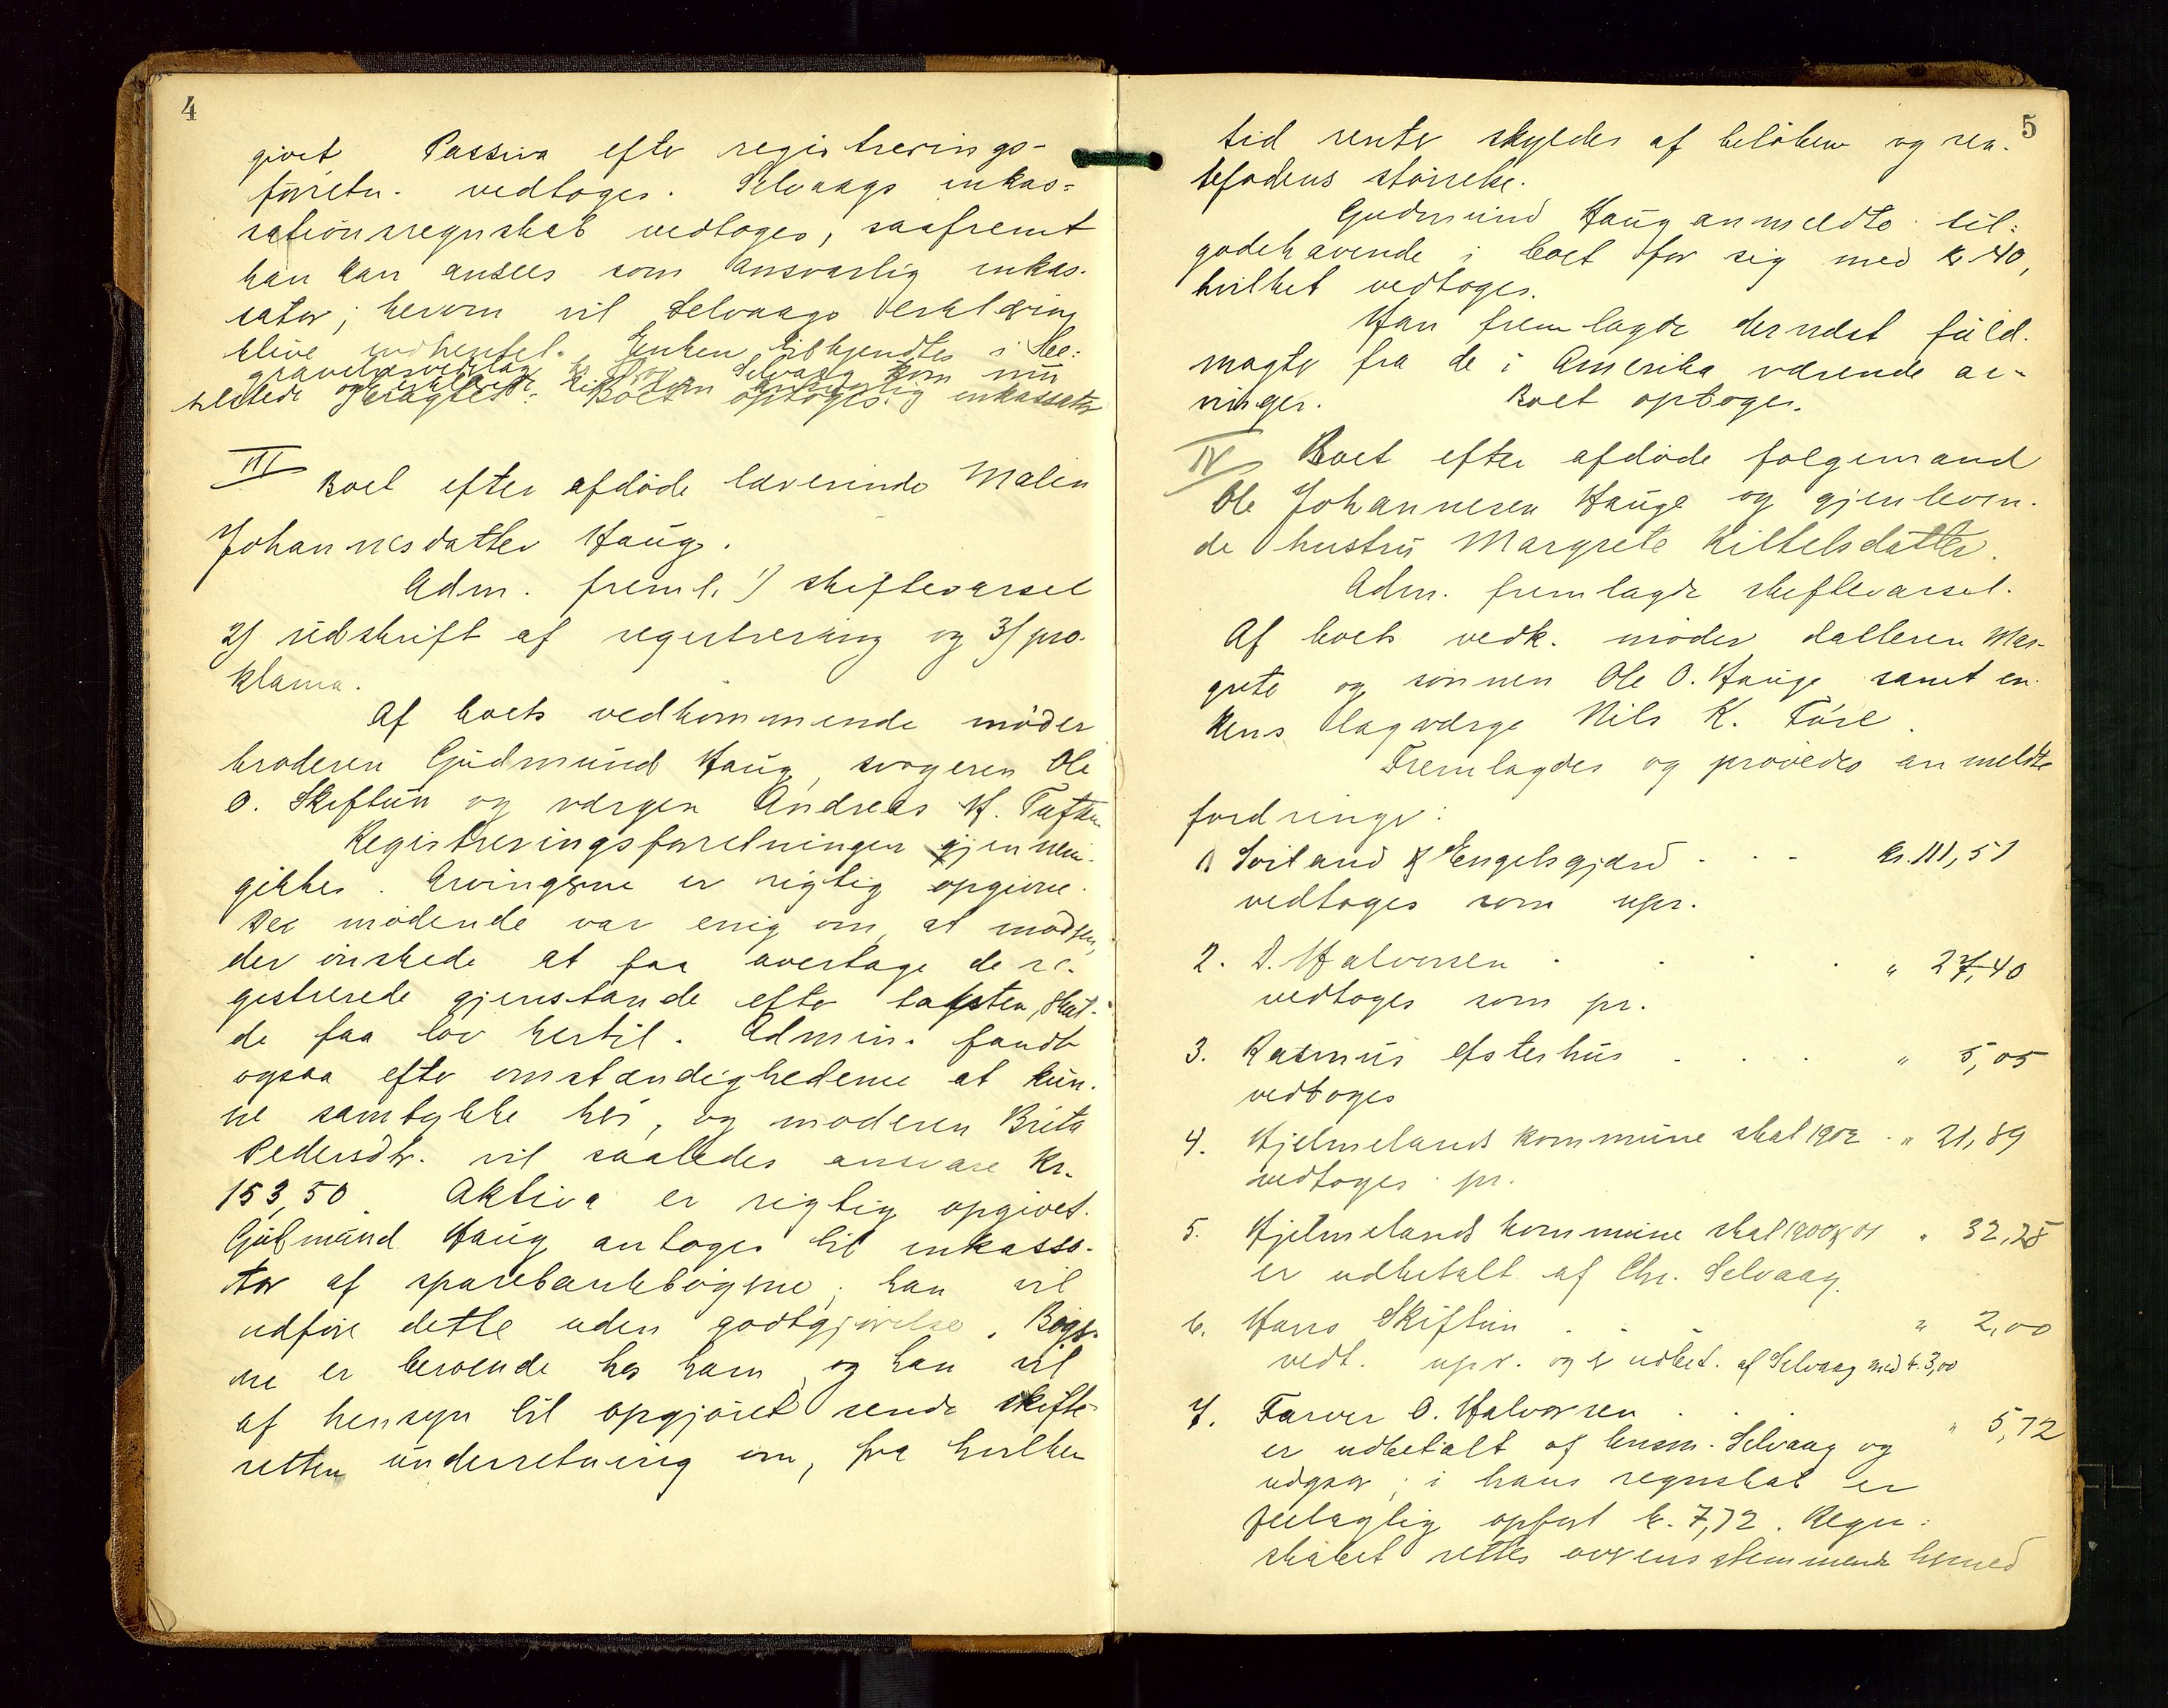 4
givet Passiva efter registrerings-
forretn. vedtoges. Selvaags inkas-
sationsregnskab vedtoges, saafremt
han kan ansees som ansvarlig inkas-
sator; herom vil Selvaags erklæring
blive indhentet. Enken tilkjendtes i be-
gravelsesvederlag kr. Selvaag kom nu
tilstede og erklærede sig som ansvarlig inkassator
Boet optoges.
III
Boet efter afdøde lærerinde Malen
Johannesdatter Haug.
Adm. freml. 1) skiftevarsel
2) udskrift af registrering og 3) pro-
klama.
Af boets vedkommende møder
broderen Gudmund Haug, svogeren Ole
O. Skiftun og værgen Andreas H. Tuften
Registreringsforretningen gjennem-
gikkes. Arvingerne er rigtig opgivne.
De mødende var enig om, at moderen,
der ønskede at faa overtage de re-
gistrerede gjenstande efter taksten, skul-
de faa lov hertil. Admin. fandt
ogsaa efter omstændighederne at kun-
ne samtykke her, og moderen Brita
Pedersdtr. vil saaledes ansvare kr.
153,50. Aktiva er rigtig opgivet.
Gudmund Haug antoges til inkassa-
tor af sparebankbøgerne; han vil
udføre dette uden godtgjørelse. Bøger-
ne er beroende hos ham, og han vil
af hensyn til opgjøret sende skifte-
retten underretning om, fra hvilken
5
tid renter skyldes af beløbene og ren-
tefodens størrelse.
Gudmund Haug anmeldte til-
godehavende i boet for sig med kr 40,
hvilket vedtoges.
Han fremlagde dernæst fuld-
magter fra de i Amerika værende ar-
vinger. Boet optoges.
IV Boet efter afdøde følgemand
Ole Johannesen Hauge og gjenleven-
de hustru Margrete Kittelsdatter.
Adm. fremlagde skiftevarsel.
Af boets vedk. møder datteren Mar-
grete og sønnen Ole O. Hauge samt en-
kens lagværge Nils K. Føse.
Fremlagdes og prøvedes anmeldte
fordringer:
1 Soiland & Engelsgjærd - - - kr. 111,51
vedtoges som upr.
2. D. Halvorsen . . . . " 27,40
vedtoges som pr.
3. Rasmus Østerhus . . . " 5,05
vedtoges
4. Hjelmelands kommune skat 1902 . " 21,89
vedtoges pr.
5. Hjelmelands kommune skat 1900 & 01 " 32,28
er udbetalt af Chr. Selvaag.
6. Hans Skiftun . . . " 2,00
vedt. upr. og er udbet. af Selvaag med kr. 3,00
7. Farver O. Halvorsen . . . " 5,72
er udbetalt af lensm. Selvaag og
udgaar; i hans regnskab er
feilagtig opført kr. 7,72. Regn-
skabet rettes overensstemmende hermed